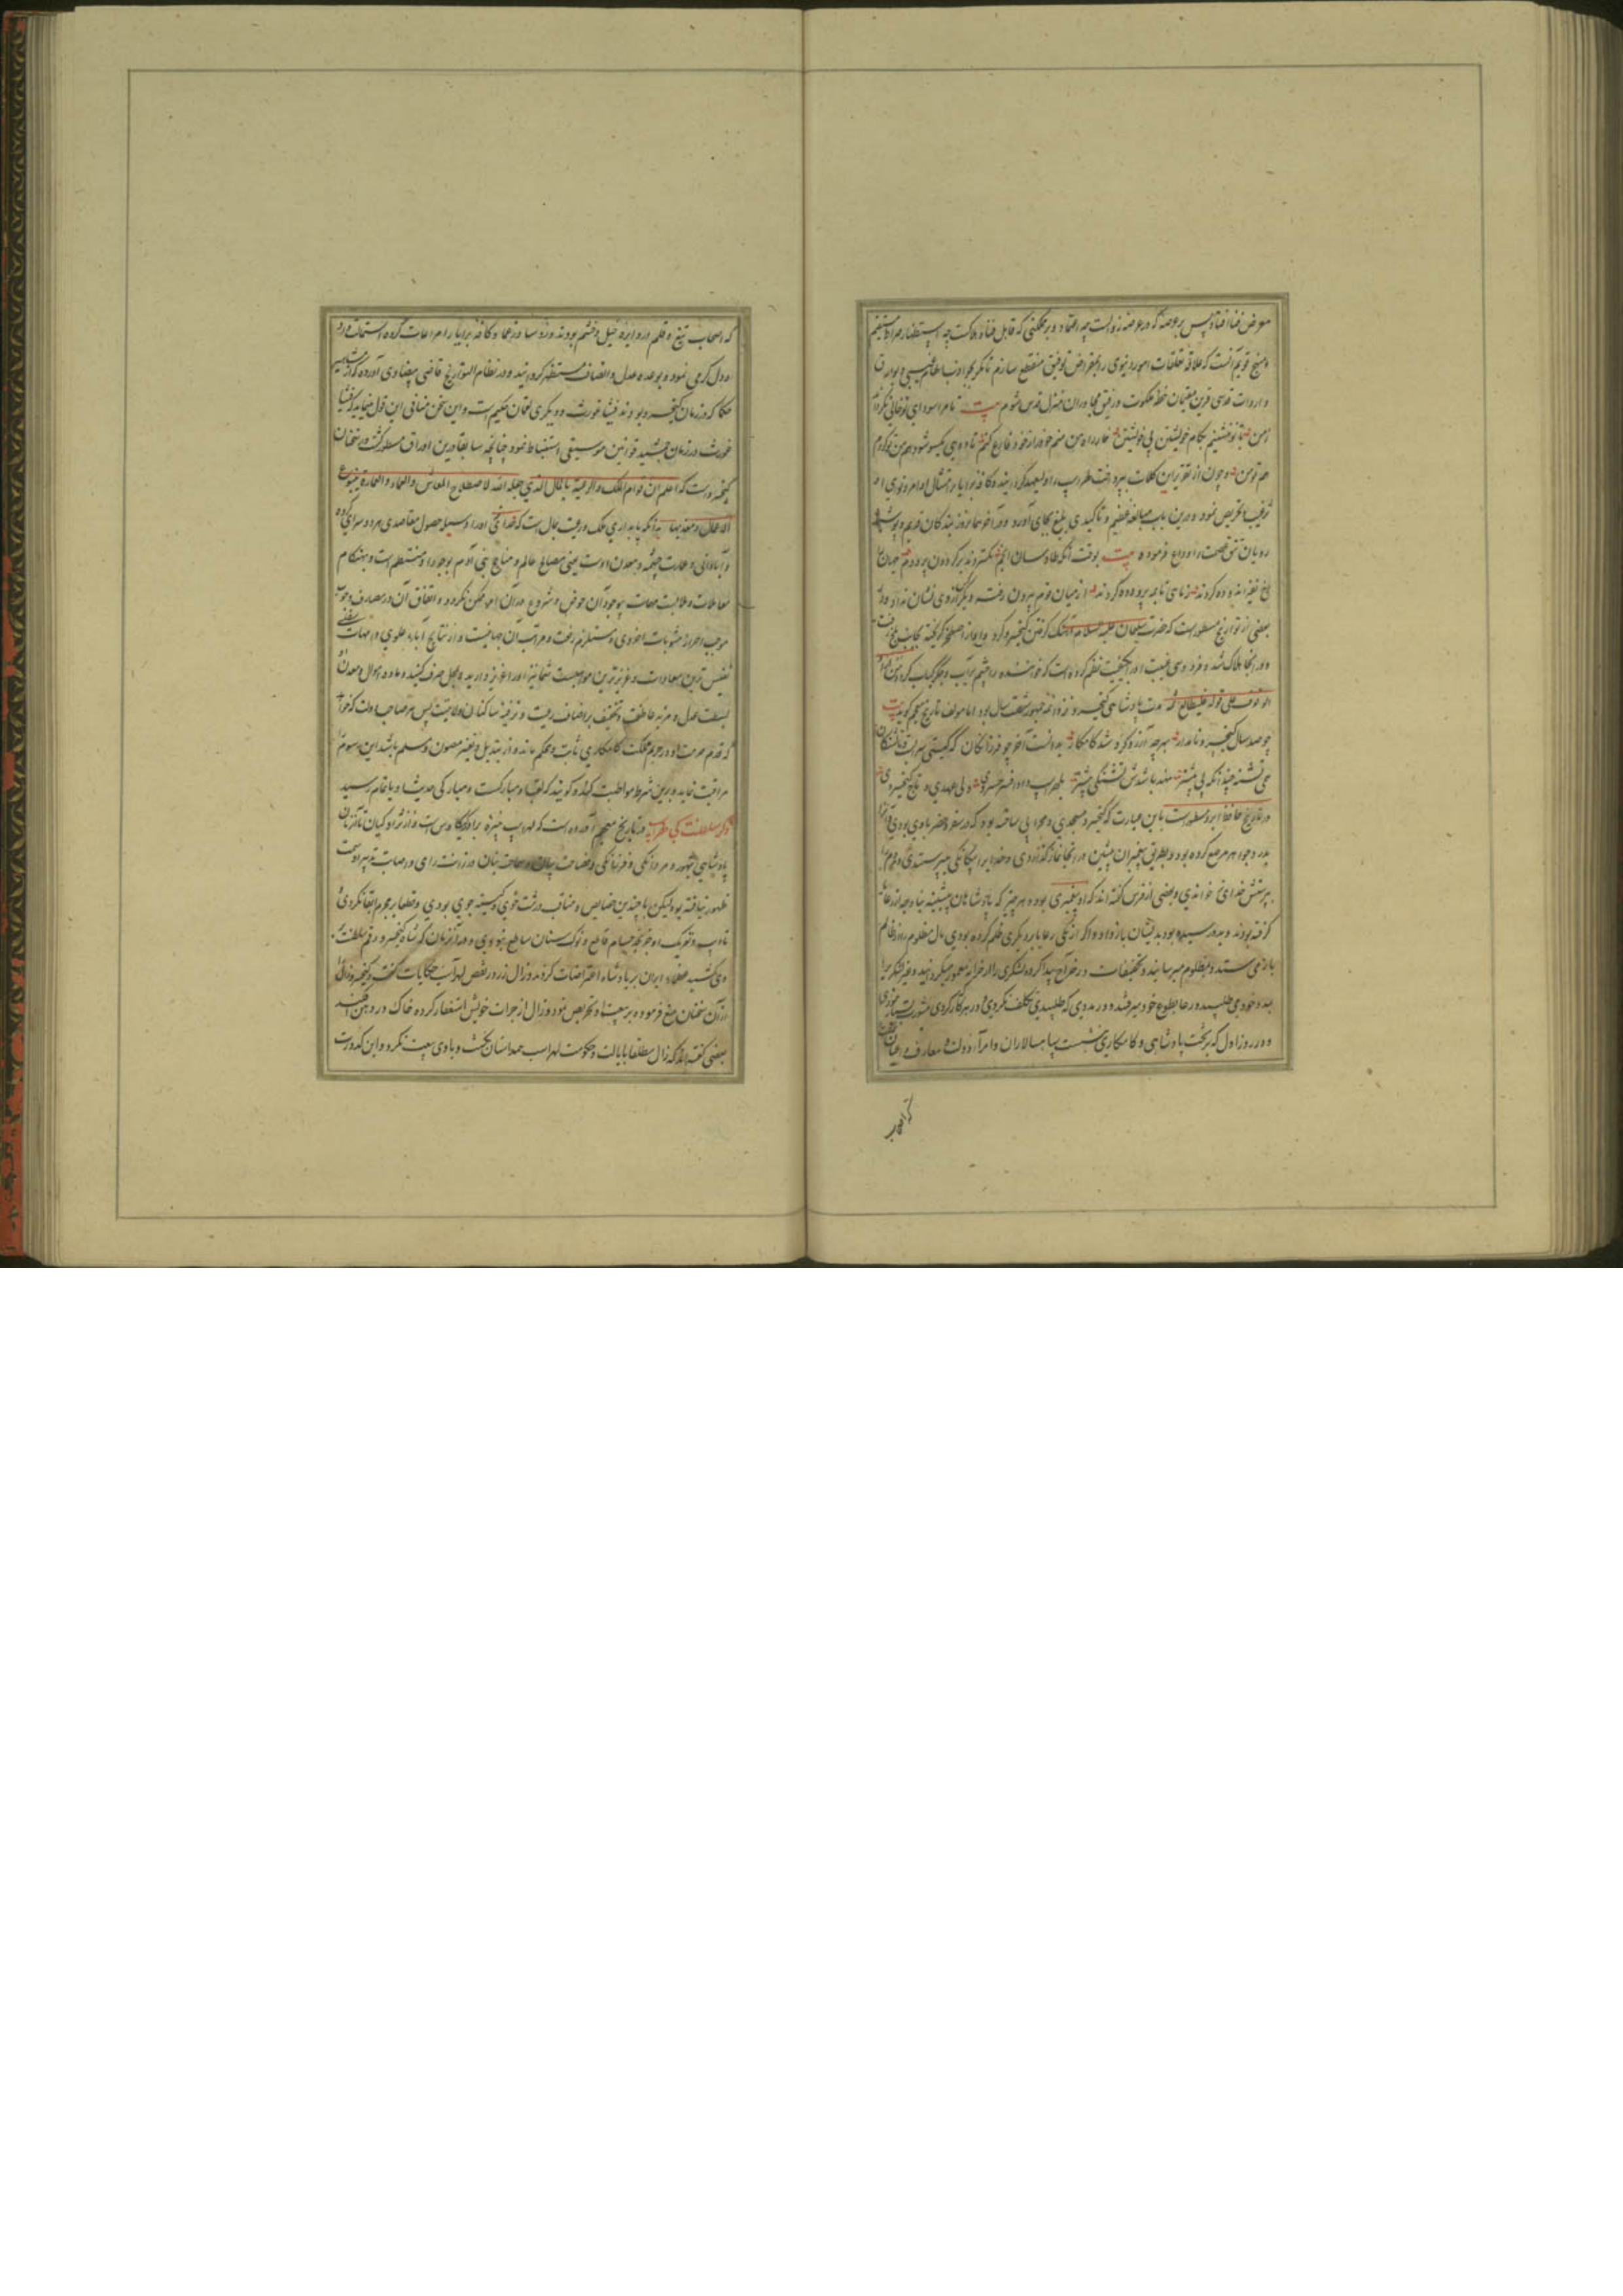 معرض فنا افتاد پس بر عرصه که در عرضه زوالست چه اعتماد و بر مملکتی که قابل فنا و هلاکست چه استظهار صراط مستقیم
و منهج قویم آنست که علاقه تعلقات امور دنیوی را بمقراض توفیق منقطع سازم تا مگر بجواذب الطاف غیبی و بوارق
واردات قدسی قرین مقیمان خطه ملکوت و رفیق مجاوران منزل قدس شوم بیت تا مرا سودای تو خالی نگرداند
ز من با تو ننشینم بکام خویشتن بی خویشتن خار راه من منم خود را ز خود فارغ کنم تا دوئی یکسو شود هم من تو گردم
هم تو من و چون از تقریر این کلمات بپرداخت لهراسب را ولیعهد گردانیده و کافه برایا را بر امتثال اوامر و نواهی او
ترغیب و تحریص نمود و درین باب مبالغه عظیم و تاکیدی بلیغ بجای آورد و در آخر همان روز بندگان قدیم و پوشیده
رویان تتق عصمت را وداع فرموده بیت بوقت آنکه طاوسان انجم بگستردند بر گردون پر و دم جهان
از میان قوم بیرون رفته و دیگر از وی نشان نداد و در
بعضی از تواریخ مسطور است که حضرت سلیمان علیه السلام آهنگ گرفتن کیخسرو کرد و او از اصطخر گریخته بجانب بلخ رفت
و در آنجا هلاک شد و فردوسی غیبت او را بکیفیت نظم کرده است که خواننده را چشم پر آب و جگر کباب گردد
مدت پادشاهی کیخسرو نزد ائمه جمهور شصت سال بود اما مولف تاریخ معجم گوید بیت
چو صد سال کیخسرو نامدار بهر چه آرزو کرد شد کامکار بدانست آخر چو فرزانگان که گیتی سرابست و ما تشنگان
همی تشنه چندانکه پی بیشتر نهد باشدش تشنگی بیشتر بلهراسب داد افسر خسروی ولی عهدی و تاج کیخسروی
در تاریخ حافظ ابرو مسطور است باین عبارت که کیخسرو مسجدی و محرابی ساخته بود که در سفر و حضر با وی بودی
بدر و جواهر مرصع کرده بود و بطریق پیغمبران پیشین در آنجا نماز گذاردی و خدا را بیگانگی میپرستیدی و مردم را
بپرستش خدای خواندی و بعضی از فرس گفته اند که او پیغمبری بوده و هر چیز که پادشاهان پیشینه بناوجه از رعایا
گرفته بودند و بدو رسیده بود بدیشان باز داد و اگر از یکی رعایا بر دیگری ظلم کرده بودی مال مظلوم را از ظالم
باز می ستد و بمظلوم میرسانید و تخفیفات در خراج پیدا کرد و لشکری را از خزانه معمور میگردانید و غیر لشکری را
مدد خود می طلبید و رعایا بطوع خود میرفتند و در مددی که طلبیدی تکلف نکردی و در هر کار که کردی مشورت
و در روز اول که بر تخت پادشاهی و کامکاری نشست سپاهسالاران و امراء دولت و معارف و اعیان
که اصحاب
که اصحاب تیغ و قلم و در دایره خیل و حشم بودند و رؤسا و زعما و کافه برایا را مراعات کرده استمالت داد
و دل گرمی نمود و بوعده عدل و انصاف مستظهر گردانید و در نظام التواریخ قاضی بیضاوی آورده که از مشاهیر
حکما که در زمان کیخسرو بودند فیثاغورث و دیگری لقمان حکیم است و این سخن منافی این قول مینماید که فیثا
غورث در زمان جمشید قوانین موسیقی استنباط نمود چنانچه سابقا درین اوراق مسطور گشت و از سخنان
کیخسرو است که اعلم ان قوام الملک والرعیة بالمال الذی جعله الله لاصطلاح المعاش والعماد والعمارة ینبوع
الاعمال و معدنها بدانکه پایداری ملک و رعیت بمال است که خدای او را وسیله حصول مقاصد هر دو سرای کرده
و آبادانی و عمارت چشمه و معدن اوست یعنی مصالح عالم و مناجح بنی آدم بوجود او منتظم است و هنگام
معاملات و ملابست مهمات بیوجود آن خوض و شروع در آن امر ممکن نگردد و انفاق آن در مصارف وجوب
موجب احراز مثوبات اخروی و مستلزم رفعت و مراتب آن جهانیست و از نتایج آباء علوی و امهات سفلی
نفیس ترین سعادات و عزیزترین مواهبست شما نیز او را عزیز دارید و بمحل صرف کنید و ماده اموال و معدن
بسیط عدل و مزید عاطفت و تخفیف بر اصناف رعیت و ترفیه ساکنان ولایت پس هر صاحب دولت که خواهد
که قدم حرمت او در حریم مملکت کامکاری ثابت و محکم ماند و از تبدیل و تغییر مصون و مسلم باشد این رسوم را
مراقبت نماید و برین شرط مواظبت کند و گویند که لقب او مبارکست و مبارکی حدیث او باتمام رسید
ذکر سلطنت کی لهراسب در تاریخ معجم آورده است که لهراسب نبیره برادر کیکاوس است و از نژاد کیان تا آن زمان
پادشاهی بتهور و مردانگی و فرزانگی و فصاحت بیان و سماحت بنان و رزانت رای و اصابت تدبیر او سمت
ظهور نیافته بود لیکن با چندین خصایص و مناقب درشت خوی و کینه جوی بودی و قطعا بر مجرم ابقا نکردی
تادیب و تعریک او جز بحسام قاطع و نوک سنان ساطع نبودی و در آن زمان که شاه کیخسرو رقم سلطنت بر
وی کشید عظماء ایران بر پادشاه اعتراضات کردند و زال زر در نقص لهراسب حکایات گفت و کیخسرو زال را
از آن سخنان منع فرموده بر بیعت او تحریص نمود و زال از جرات خویش استغفار کرده خاک در دهن افکند
بعضی گفته اند که زال مطلقا بایالت و حکومت لهراسب همداستان نگشت و با وی بیعت نکرد و این کدورت